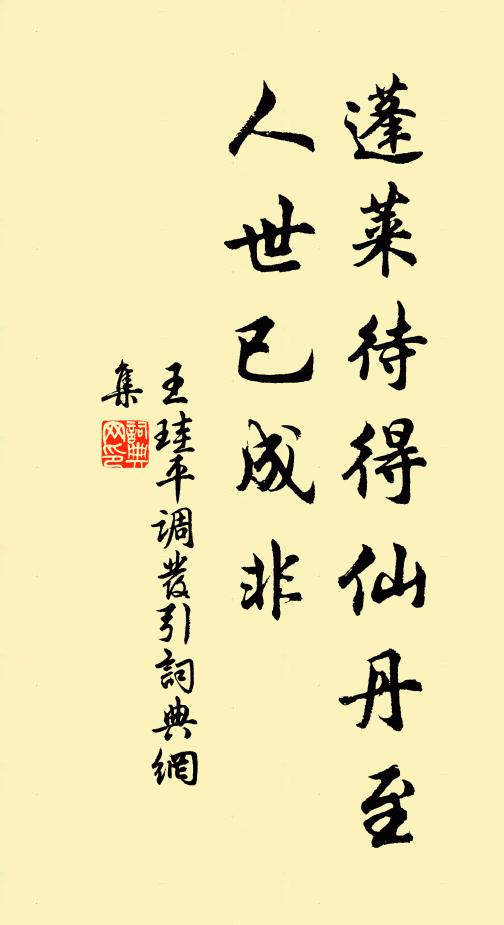 蓬莱待得仙丹至
人世已成非
王珪平调發引詞典網
集
詞典
网印